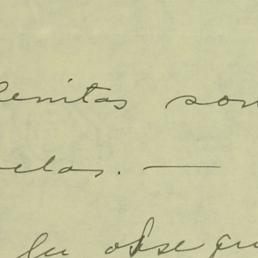 lenitas son
elas. —
su obsequ